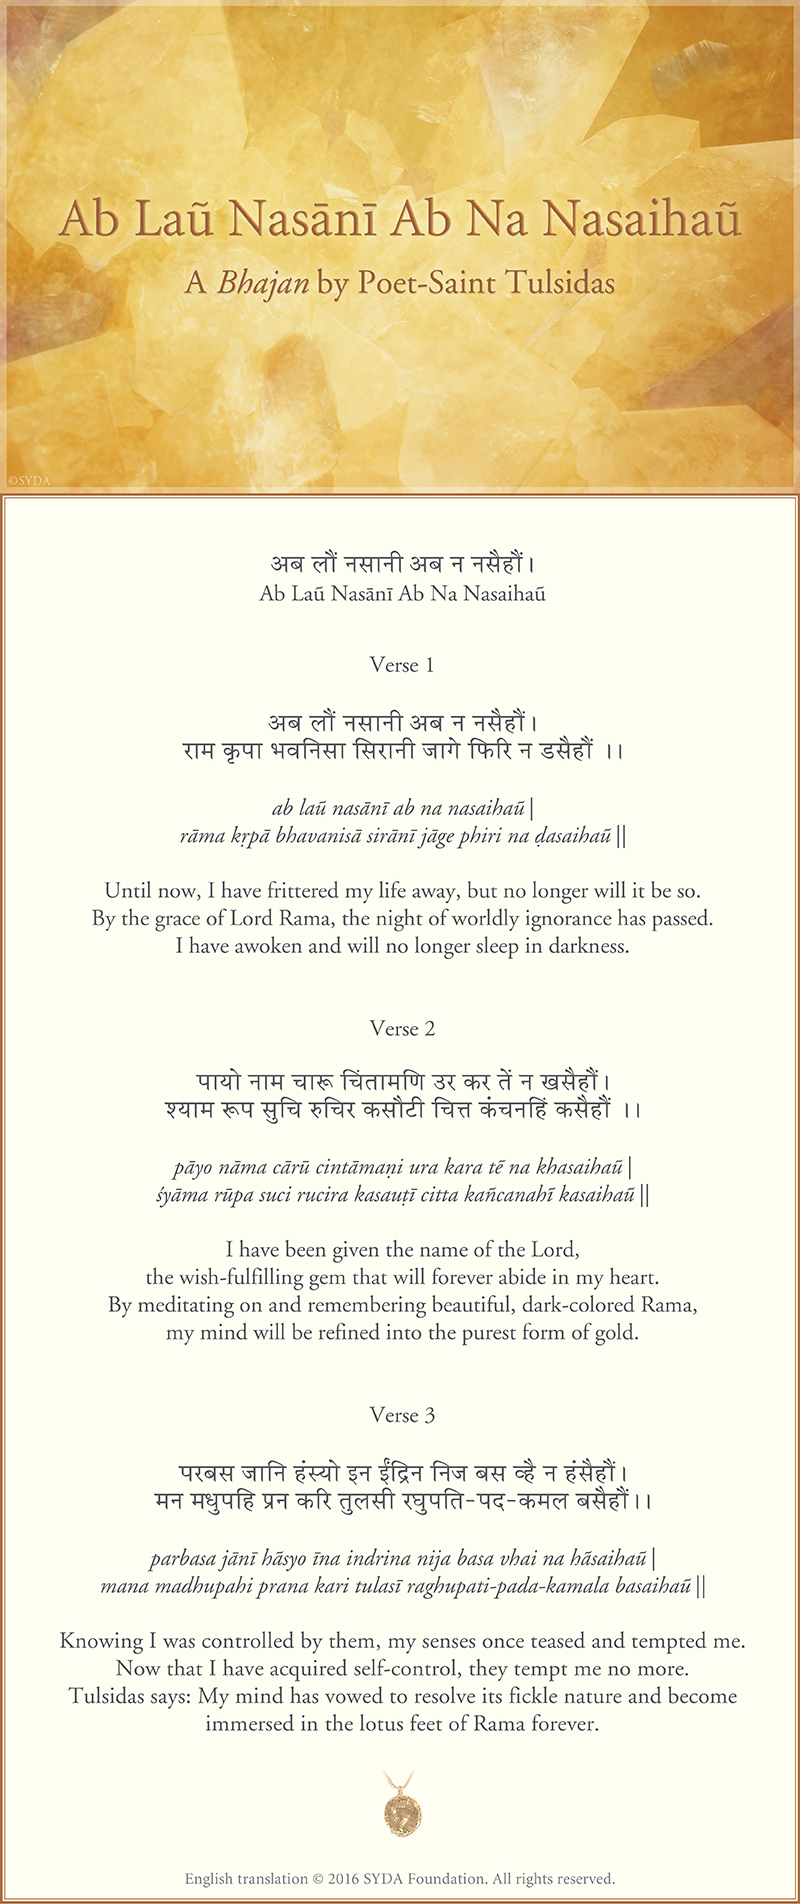 Ab Laũ Nasānī Ab Na Nasaihaũ
A Bhajan by Poet-Saint Tulsidas
©SYDA
अब लौं नसानी अब न नसैहौं।
Ab Laũ Nasānī Ab Na Nasaihaũ
Verse 1
अब लौं नसानी अब न नसैहौं।
राम कृपा भवनिसा सिरानी जागे फिरि न डसैहौं ।।
ab laũ nasānī ab na nasaihaũ|
rāma kṛpā bhavanisā sirānī jāge phiri na ḍasaihaũ||
Until now, I have frittered my life away, but no longer will it be so.
By the grace of Lord Rama, the night of worldly ignorance has passed.
I have awoken and will no longer sleep in darkness.
Verse 2
पायो नाम चारू चिंतामणि उर कर तें न खसैहौं।
श्याम रूप सुचि रुचिर कसौटी चित्त कंचनहिं कसैहौं ।।
pāyo nāma cārū cintāmaṇi ura kara tẽ na khasaihaũ|
śyāma rūpa suci rucira kasauṭī citta kañcanahĩ kasaihaũ||
I have been given the name of the Lord,
the wish-fulfilling gem that will forever abide in my heart.
By meditating on and remembering beautiful, dark-colored Rama,
my mind will be refined into the purest form of gold.
Verse 3
परबस जानि हंस्यो इन ईंद्रिन निज बस व्है न हंसैहौं।
मन मधुपहि प्रन करि तुलसी रघुपति-पद-कमल बसैहौं।।
parbasa jānī hãsyo īna indrina nija basa vhai na hãsaihaũ|
mana madhupahi prana kari tulasī raghupati-pada-kamala basaihaũ||
Knowing I was controlled by them, my senses once teased and tempted me.
Now that I have acquired self-control, they tempt me no more.
Tulsidas says: My mind has vowed to resolve its fickle nature and become
immersed in the lotus feet of Rama forever.
English translation © 2016 SYDA Foundation. All rights reserved.